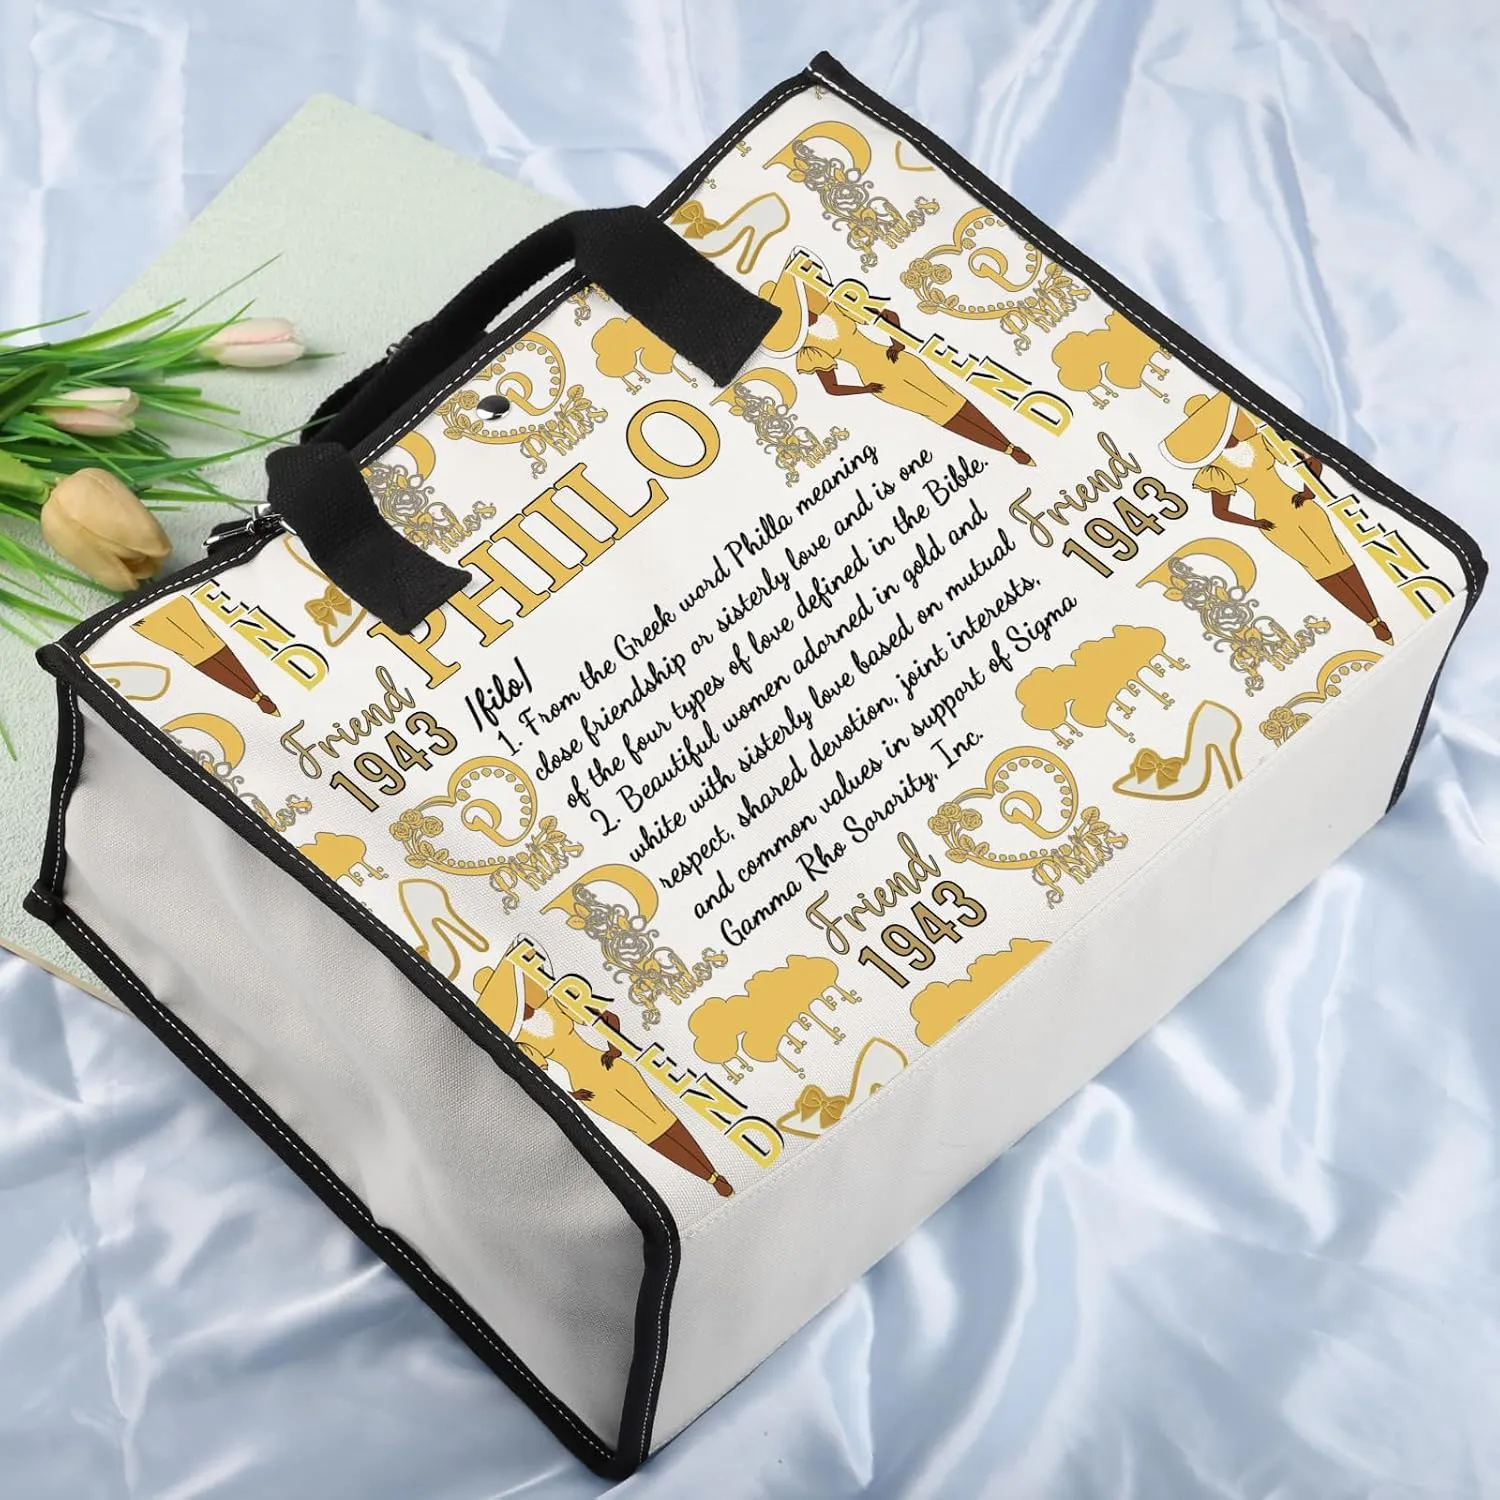 PHILO
/filo/
1. From the Greek word Philla meaning
close friendship or sisterly love and is one
of the four types of love defined in the Bible.
2. Beautiful women adorned in gold and
white with sisterly love based on mutual
respect, shared devotion, joint interests,
and common values in support of Sigma
Gamma Rho Sorority, Inc.
Philos
P
Philos
FRIEND
P
Philos
Philos
Philos
Friend
1943
FRIEND
END
Friend
1943
Philos
P
Philos
Philos
P
Philos
Philos
Friend
1943
FRIEND